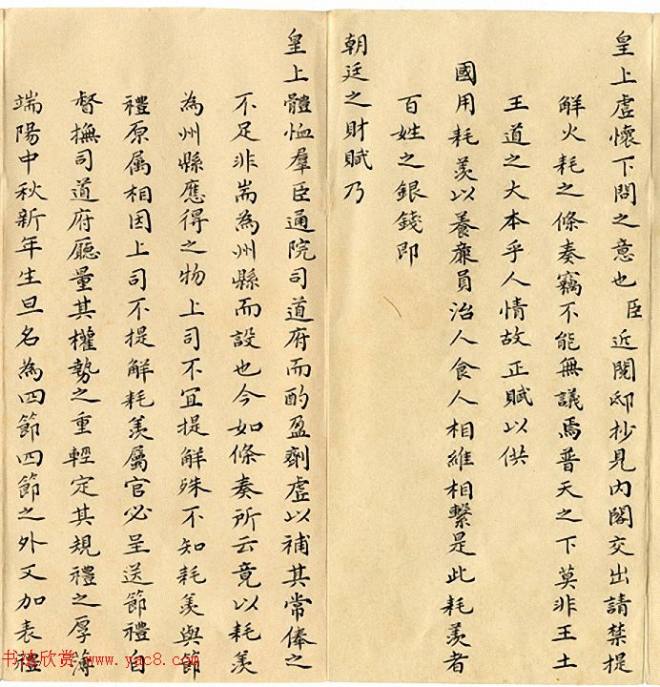 皇上虛懷下問之意也臣近閱邸抄見內閣交出請禁提
解火耗之條奏竊不能無議焉普天之下莫非王土
王道之大本乎人情故正賦以供
國用耗羨以養廉員治人食人相維相繫是此耗羨者
百姓之銀錢即
朝廷之財賦乃
皇上體恤羣臣通院司道府而酌盈劑虛以補其常俸之
不足非耑為州縣而設也今如條奏所云竟以耗羨
為州縣應得之物上司不宜提解殊不知耗羨與節
禮原属相因上司不提解耗羨屬官必呈送節禮自
督撫司道府廳量其權勢之重輕定其規禮之厚薄
端陽中秋新年生旦名為四節四節之外又加表禮
书法欣赏 www.yac8.com